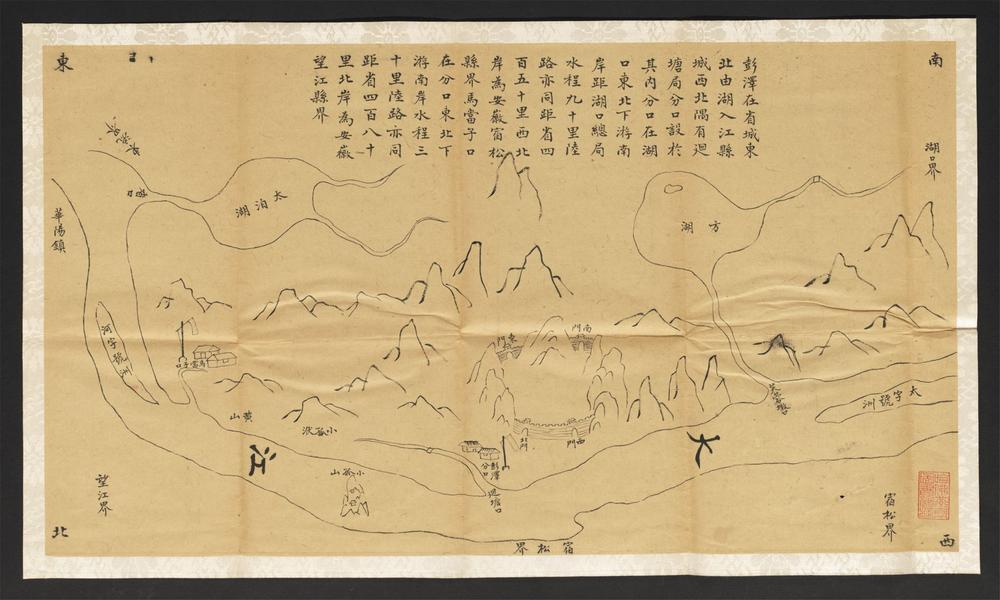 彭澤在省城東
北由湖入江縣
城西北隅有廻
塘局分口設於
其內分口在湖
口東北下游南
岸距湖口總局
水程九十里陸
路亦同距省四
百五十里西北
岸為安徽宿松
縣界馬當子口
在分口東北下
游南岸水程三
十里陸路亦同
距省四百八十
里北岸為安徽
望江縣界
南
湖口界
方湖
太字號洲
宿松界
西
南門
東門
西門
北門
彭澤分口
廻塘口
大江
宿松界
小孤山
小孤洑
黃山
馬當子口
太泊湖
東
華陽鎮
河字號洲
望江界
北